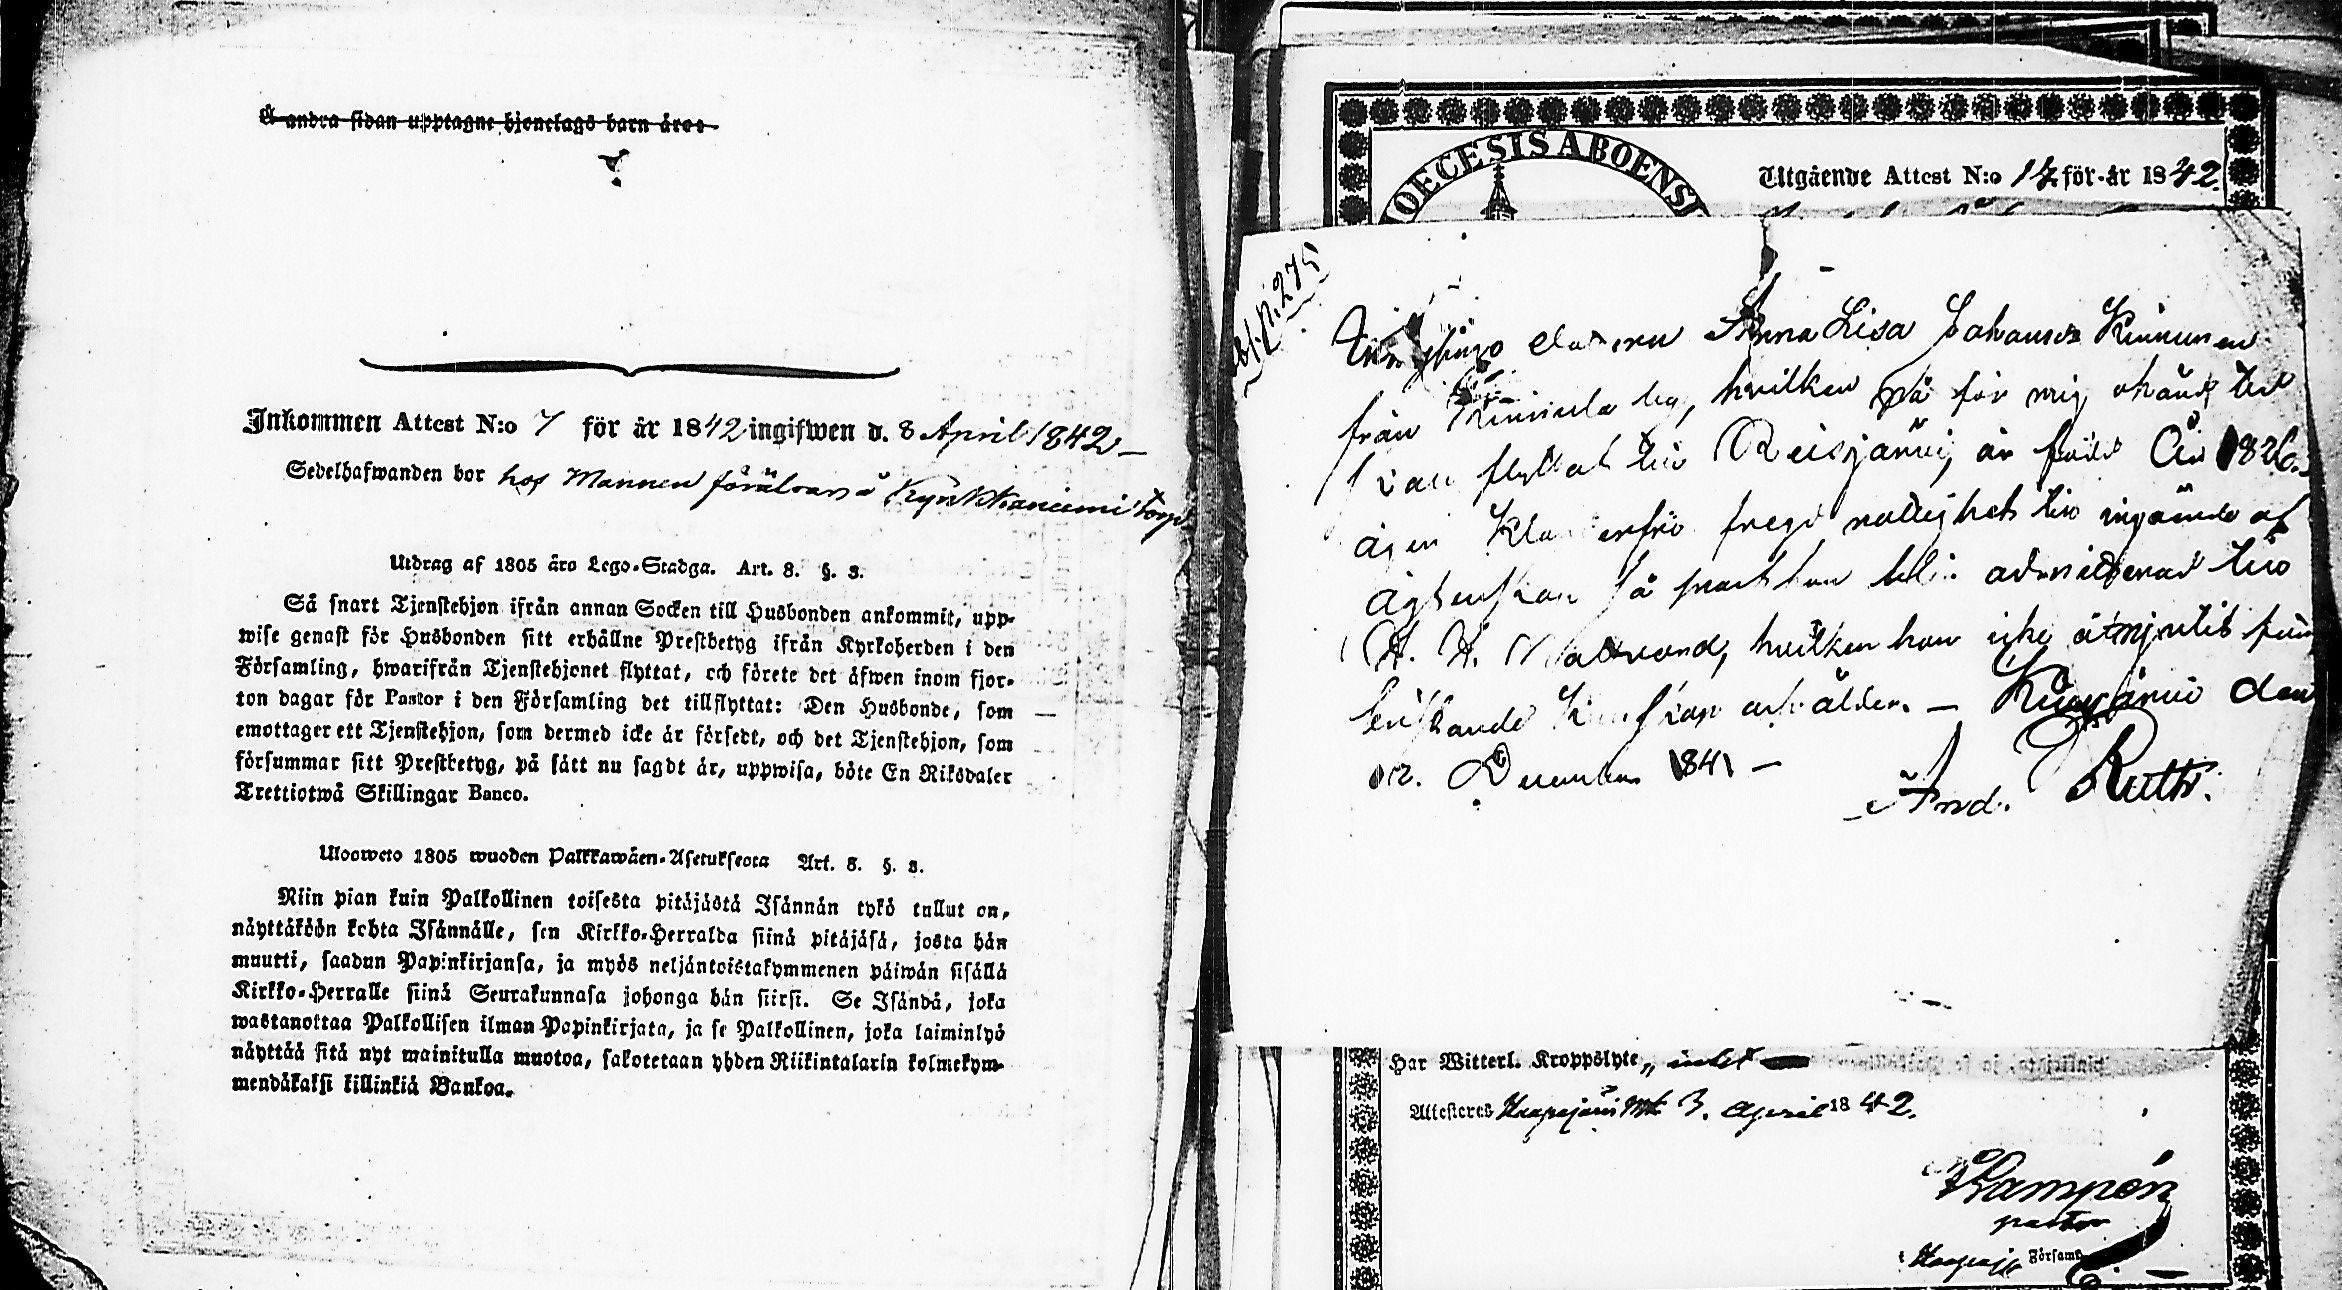 Å andra sidan upptagne hjonelags barn äro:
Inkommen Attest N:o 7 för år 1842 ingifwen d. 8 April 1842
Sedelhafwanden bor hos Mannens föräldrar å Kyrkkaniemi torp
Utdrag af 1805 års Lego-Stadga. Art. 8. §. 3.
Så snart Tjenstehjon ifrån annan Socken till Husbonden ankommit, upp-
wise genast för Husbonden sitt erhållne Prestbetyg ifrån Kyrkoherden i den
Församling, hwarifrån Tjenstehjonet flyttat, och förete det äfwen inom fjor-
ton dagar för Pastor i den Församling det tillflyttat: Den Husbonde, som
emottager ett Tjenstehjon, som dermed icke är försedt, och det Tjenstehjon, som
försummar sitt Prestbetyg, på sätt nu sagdt är, uppwisa, böte En Riksdaler
Trettiotwå Skillingar Banco.
Ulosweto 1805 wuoden Palkkawäen-Asetuksesta Art. 8. §. 3.
Niin pian kuin Palkollinen toisesta pitäjästä Isännän tykö tullut on,
näyttäköön kohta Isännälle, sen Kirkko-Herralda siinä pitäjäsä, josta hän
muutti, saadun Papinkirjansa, ja myös neljäntoistakymmenen päiwän sisällä
Kirkko-Herralle siinä Seurakunnasa johonga hän siirsi. Se Isändä, joka
wastanottaa Palkollisen ilman Papinkirjata, ja se Palkollinen, joka laiminlyö
näyttää sitä nyt mainitulla muotoa, sakotetaan yhden Riikintalarin kolmekym-
mendäkaksi killinkiä Bankoa.
DIOECESIS ABOENSI
Utgående Attest N:o 14 för år 1842.
p. 275
Anna Lisa Johansdr Kinnunen
från Kinnula by, hvilken på för mig okänd tid
skall flyttat till Reisjärvi, är född År 1826.
äger klanderfri frejd
ägtenskap så snart hon blir admitterad till
H. H. Nattvard, hvilken hon icke åtnjutit
bristande Kunskap
12. December 1841 –
And. Ruth.
Har Witterl. Kroppslyte
Attesteras Haapajärvi d. 3. April 1842.
pastor
Haapaj. Församl.